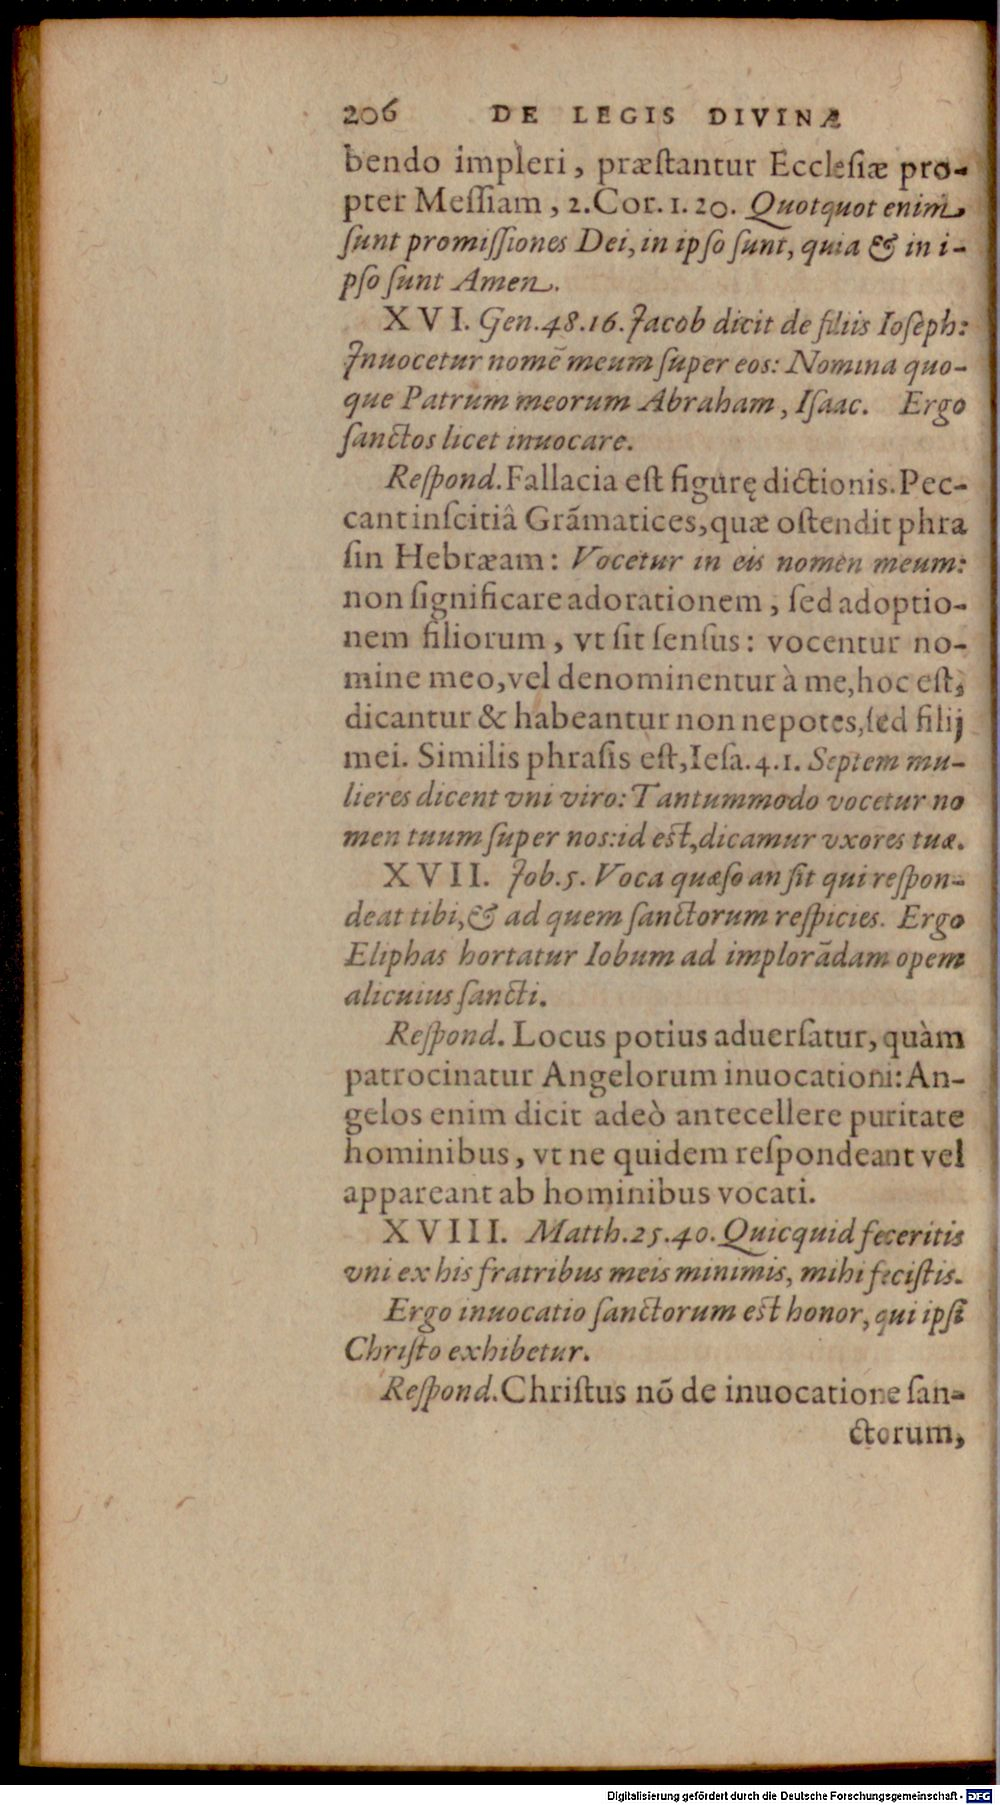 206 DE LEGIS DIVINÆ
bendo impleri, præſtantur Eccleſiæ pro-
pter Meſſiam, 2.Cor.1.20. Quotquot enim
ſunt promiſſiones Dei, in ipſo ſunt, quia & in i-
pſo ſunt Amen.
XVI. Gen.48.16. Jacob dicit de filiis Ioſeph:
Jnuocetur nomē meum ſuper eos: Nomina quo-
que Patrum meorum Abraham, Iſaac. Ergo
ſanctos licet inuocare.
Reſpond. Fallacia eſt figurę dictionis. Pec-
cant inſcitiâ Grāmatices, quæ oſtendit phra
ſin Hebræam: Vocetur in eis nomen meum:
non ſignificare adorationem, ſed adoptio-
nem filiorum, vt ſit ſenſus: vocentur no-
mine meo, vel denominentur à me, hoc eſt,
dicantur & habeantur non nepotes, ſed filij
mei. Similis phraſis eſt, Ieſa.4.1. Septem mu-
lieres dicent vni viro: Tantummodo vocetur no
men tuum ſuper nos: id eſt, dicamur vxores tuæ.
XVII. Job.5. Voca quæſo an ſit qui reſpon-
deat tibi, & ad quem ſanctorum reſpicies. Ergo
Eliphas hortatur Iobum ad implorādam opem
alicuius ſancti.
Reſpond. Locus potius aduerſatur, quàm
patrocinatur Angelorum inuocationi: An-
gelos enim dicit adeò antecellere puritate
hominibus, vt ne quidem reſpondeant vel
appareant ab hominibus vocati.
XVIII. Matth.25.40. Quicquid feceritis
vni ex his fratribus meis minimis, mihi feciſtis.
Ergo inuocatio ſanctorum eſt honor, qui ipſi
Chriſto exhibetur.
Reſpond. Chriſtus nō de inuocatione ſan-
ctorum,
Digitalisierung gefördert durch die Deutsche Forschungsgemeinschaft - DFG